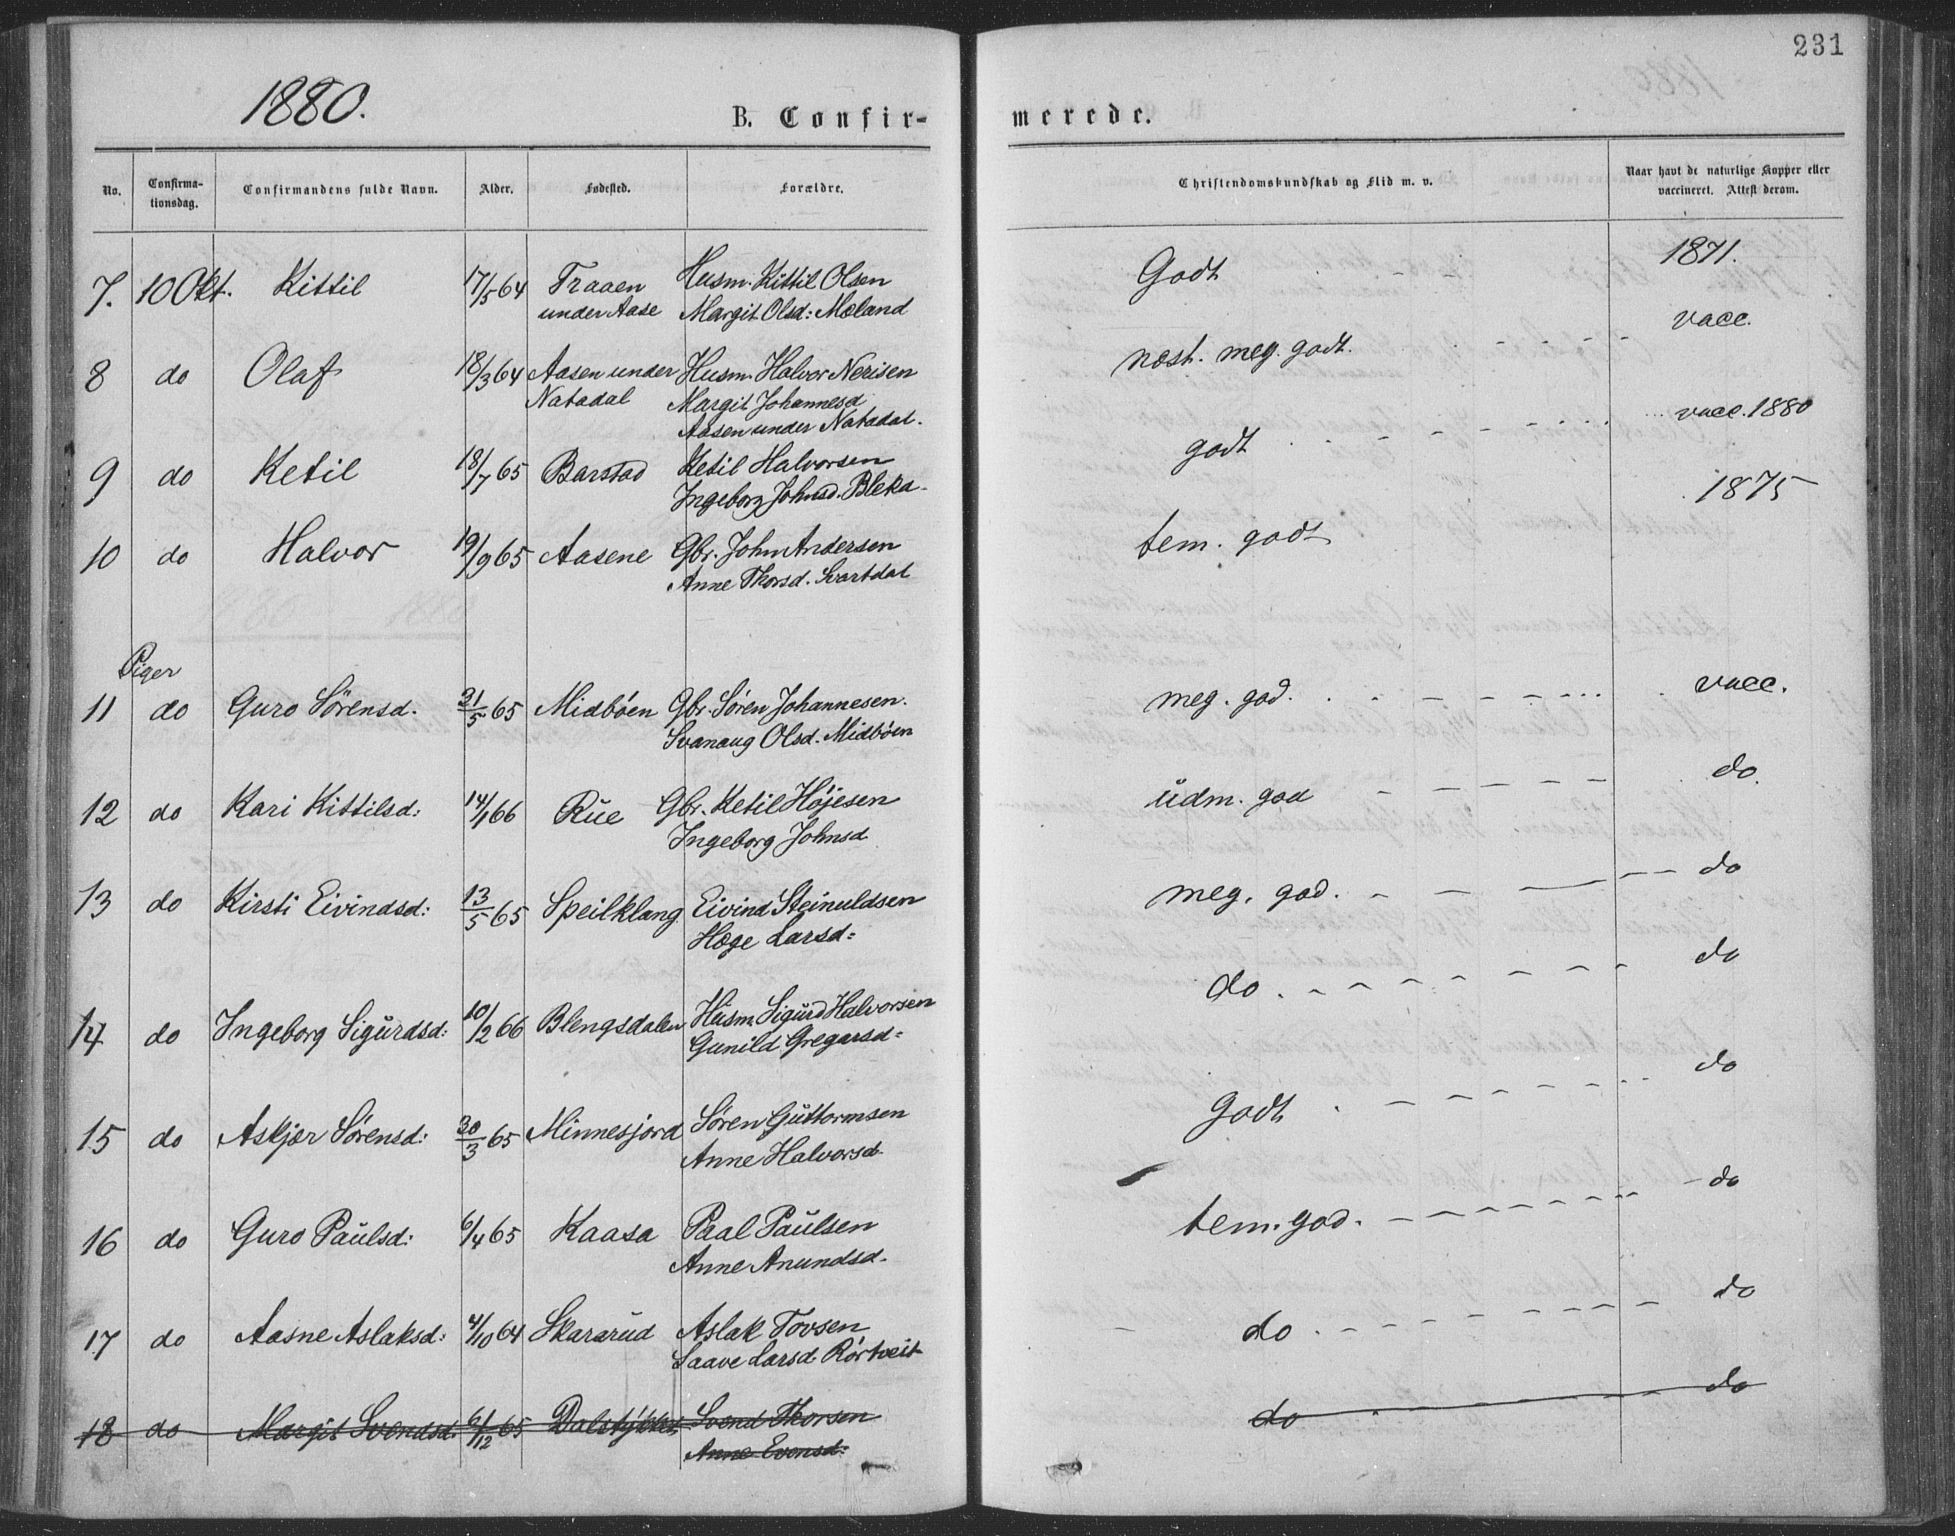 231
1880.
B. Confir-
merede.
No. Confirma-tionsdag. Confirmandens fulde Navn. Alder. Fødested. Forældre. Christendomskundskab og Flid m. v. Naar havt de naturlige Kopper eller vaccineret. Attest derom.
7. 10 Okt. Kittil 17/5 64 Traaen Husm. Kittil Olsen Godt 1871.
under Aase Margit Olsd: Mæland
8 do Olaf 18/3 64 Aasen under Husm. Halvor Nerisen næst. meg. godt. vacc.
Natadal Margit Johannesd
Aasen under Natadal.
9 do Ketil 18/7 65 Barstad Ketil Halvorsen godt vacc. 1880
Ingeborg Johnsd. Bleka
10 do Halvor 19/9 65 Aasene Gbr. John Andersen tem. godt 1875
Anne Thorsd. Svartdal
Piger
11 do Guro Sörensd. 31/5 65 Midböen Gbr. Sören Johannesen. meg. god. vacc.
Svanaug Olsd. Midböen
12 do Kari Kittilsd: 14/1 66 Rue Gbr. Ketil Höjesen udm. god do.
Ingeborg Johnsd
13 do Kirsti Eivindsd: 13/5 65 Speilklang Eivind Steinuldsen meg. god. do
Hæge Larsd:
14 do Ingeborg Sigurdsd: 10/2 66 Blengsdalen Husm Sigurd Halvorsen do. do
Gunild Gregarsd:
15 do Askjær Sörensd: 30/3 65 Minnesjord Sören Guttormsen godt do
Anne Halvorsd.
16 do Guro Paulsd: 6/4 65 Kaasa Paal Paulsen tem. god. do
Anne Anundsd.
17 do Aasne Aslaksd: 4/10 64 Skararud Aslak Tovsen do. do
Saave Larsd. Rörtveit
18 do Margit Svendsd. 6/12 65 Dalstykket Svend Thorsen do do
Anne Evensd: